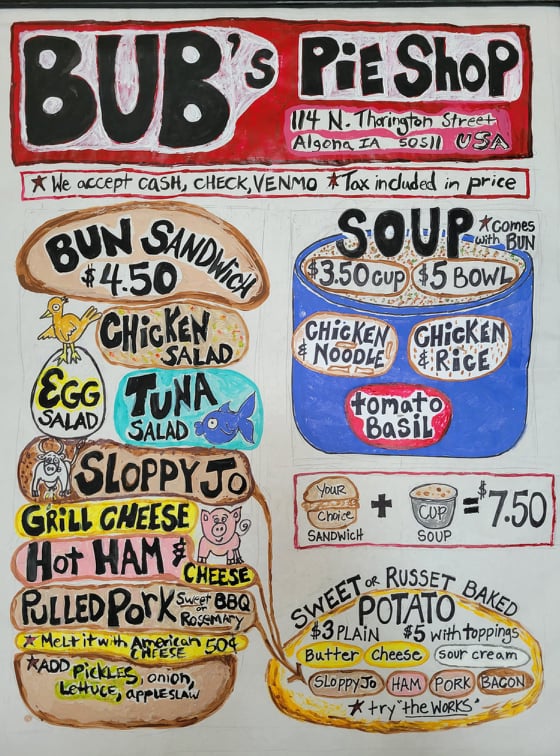 BUB's PiE SHop
114 N. Thorington Street
Algona, IA 50511 USA
★ We accept CASH, CHECK, VENMO ★ Tax included in price
BUN SANDWicH
$4.50
CHicKEN
SALAD
EGG
SALAD
TUNA
SALAD
SLOPPY Jo
GRill CHEESE
Hot HAM &
CHEESE
PULLED PorK Sweet BBQ
or
Rosemary
★ Melt it with American
CHEESE 50¢
★ADD pickles, onion,
Lettuce, appleslaw
SOUP ★comes
with BUN
$3.50 cup $5 BOWL
CHicKEN
& NooDLE
CHicKEN
& RicE
tomato
BASiL
YOUR
choice
SANDWICH
+
CUP
SOUP
= $7.50
SWEET or RUSSET BAKED
POTATO
$3 PLAIN $5 with toppings
Butter Cheese sour cream
SLOPPY Jo HAM PORK BACON
★ try "the WORKS"